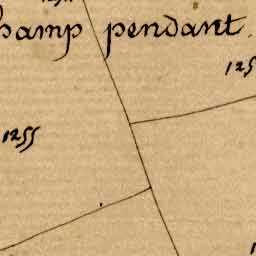 hamp pendant.
125
1255